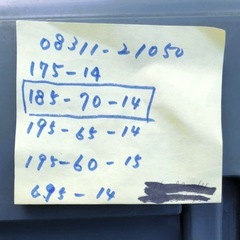 08311-21050
175-14
185-70-14
195-65-14
195-60-15
695-14